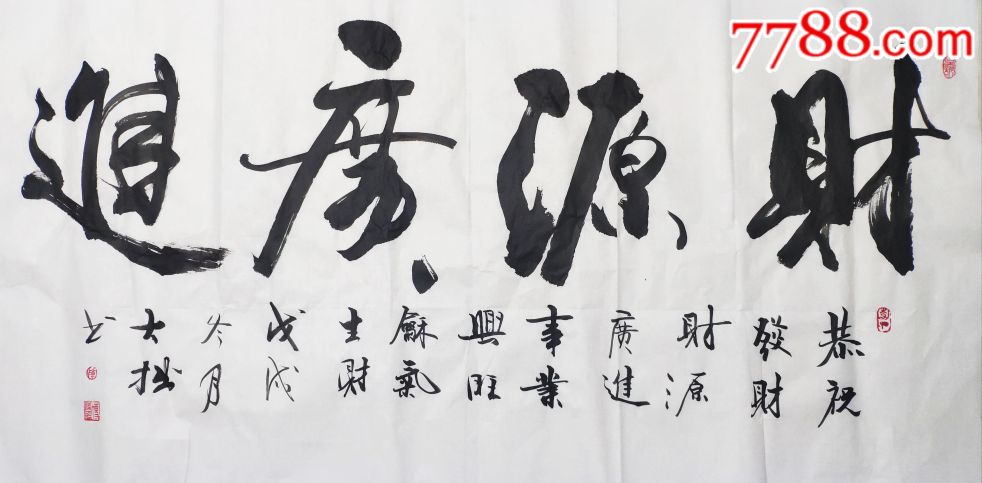 7788.com
財源廣進
恭祝
發財
財源
廣進
事業
興旺
龢氣
生財
戊戌
冬月
大拙
书